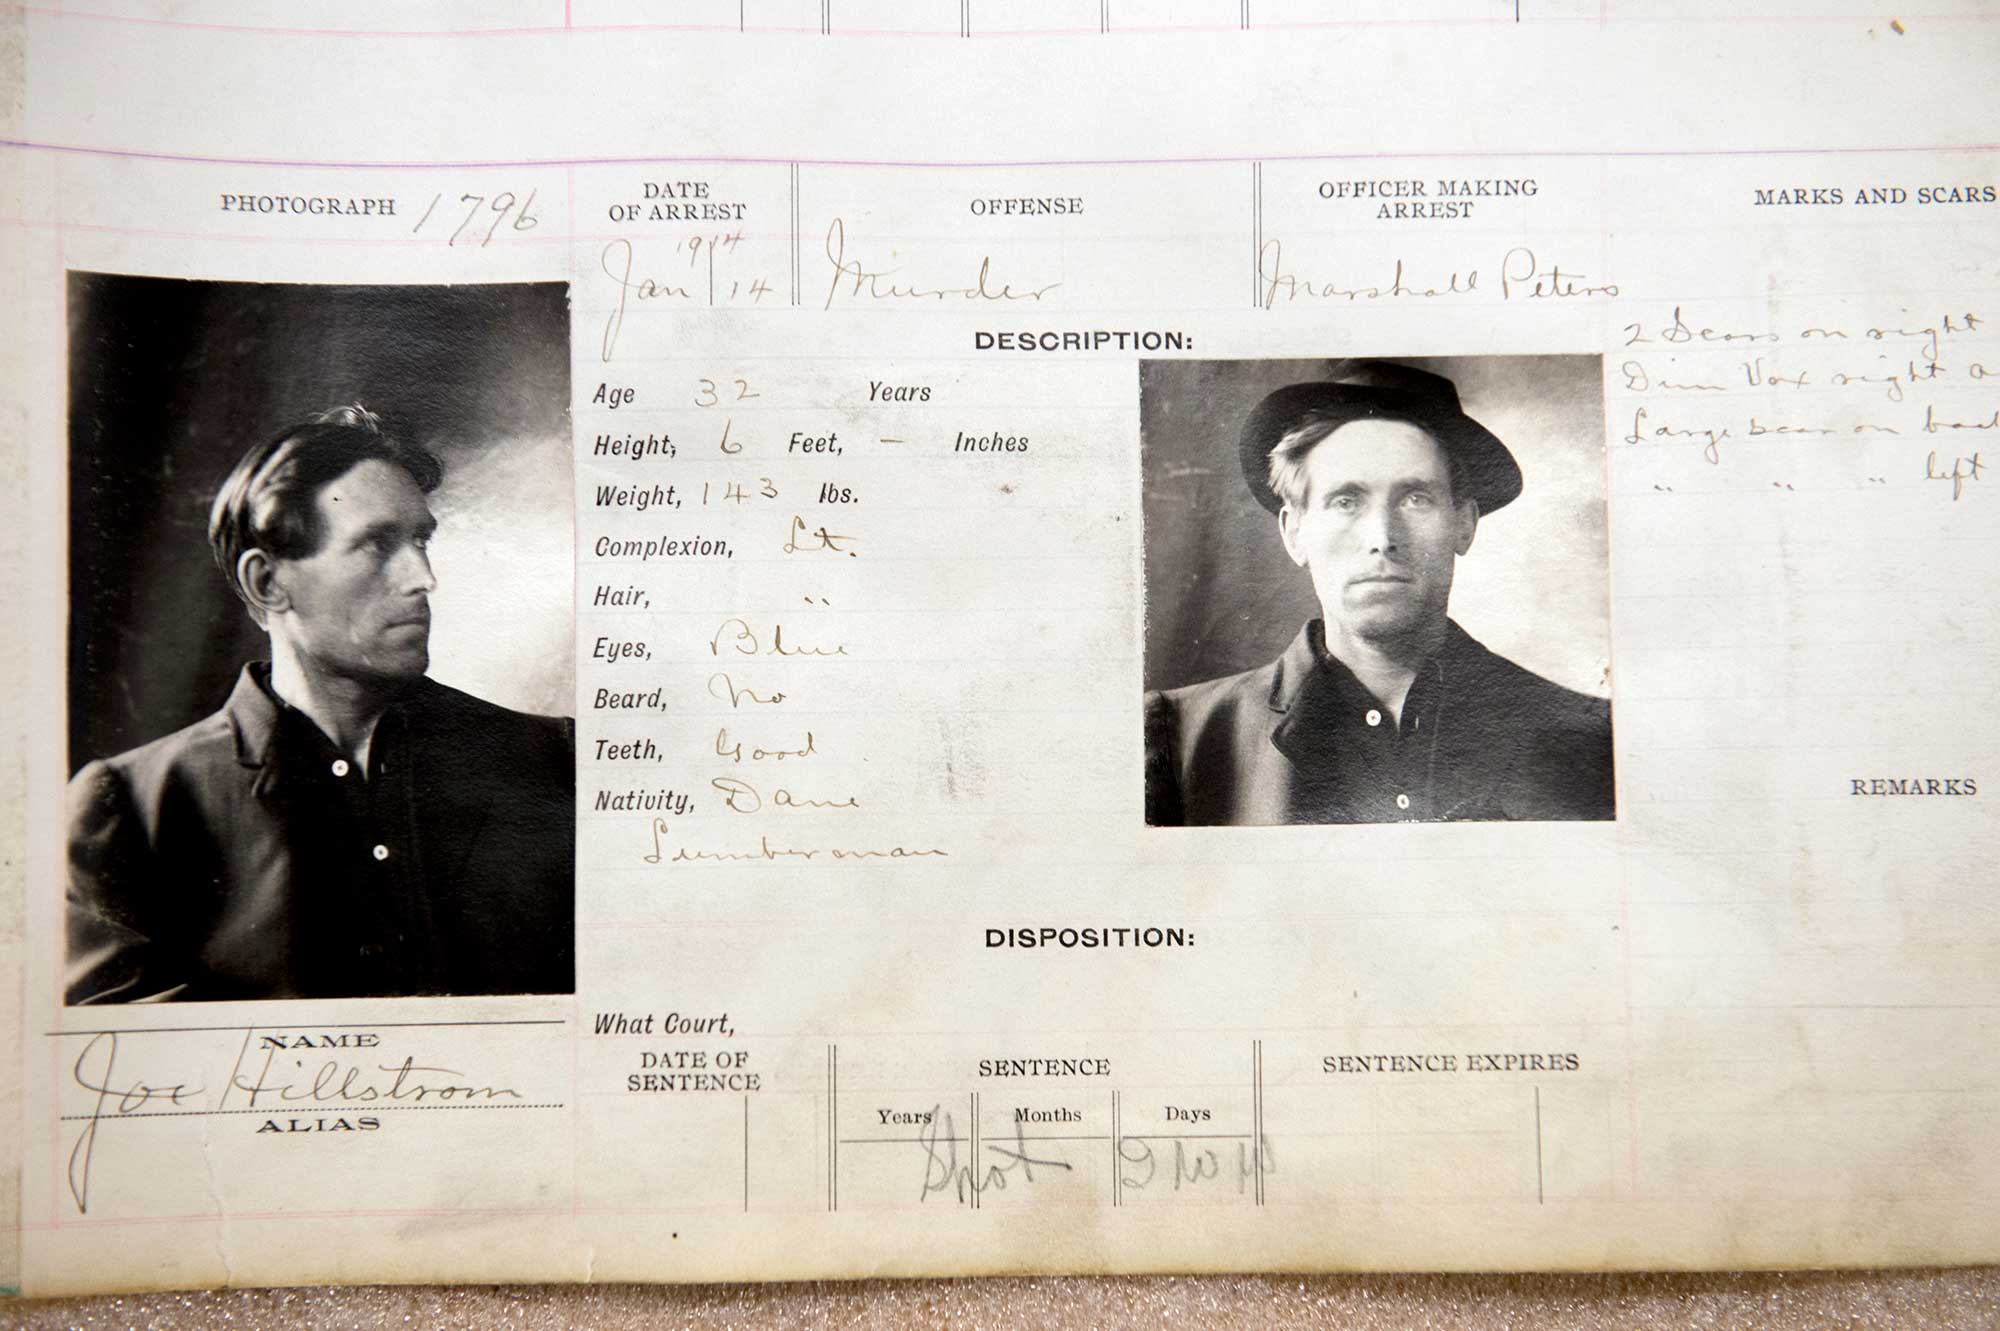 PHOTOGRAPH 1796
DATE OF ARREST
1914
Jan 14
OFFENSE
Murder
OFFICER MAKING ARREST
Marshall Peters
MARKS AND SCARS
2 Scars on right
Dim Vax right a
Large scar on bac
" " " left
DESCRIPTION:
Age 32 Years
Height, 6 Feet, – Inches
Weight, 143 lbs.
Complexion, Lt.
Hair, "
Eyes, Blue
Beard, No
Teeth, Good
Nativity, Dane
Lumberman
REMARKS
DISPOSITION:
What Court,
NAME
Joe Hillstrom
ALIAS
DATE OF SENTENCE
SENTENCE
Years Months Days
Shot
SENTENCE EXPIRES